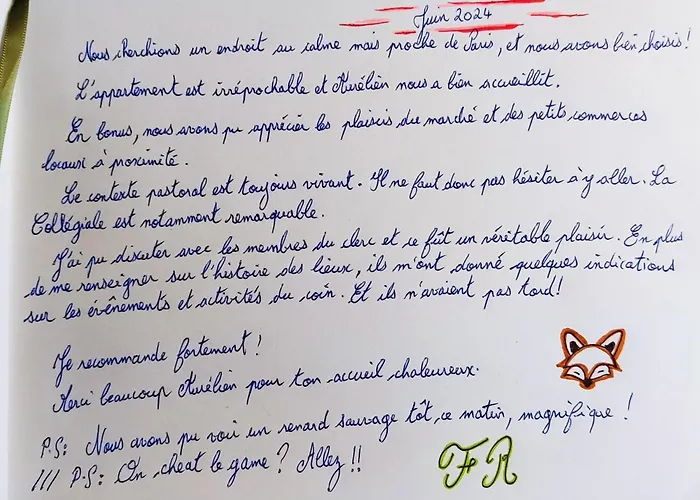 Juin 2024
Nous cherchions un endroit au calme mais proche de Paris, et nous avons bien choisis!
L'appartement est irréprochable et Aurélien nous a bien accueillit.
En bonus, nous avons pu apprécier les plaisirs du marché et des petits commerces
locaux à proximité.
Le contexte pastoral est toujours vivant. Il ne faut donc pas hésiter à y aller. La
Collégiale est notamment remarquable.
J'ai pu discuter avec les membres du clerc et ce fût un véritable plaisir. En plus
de me renseigner sur l'histoire des lieux, ils m'ont donné quelques indications
sur les évênements et activités du coin. Et ils n'avaient pas tord!
Je recommande fortement!
Merci beaucoup Aurélien pour ton accueil chaleureux.
P.S: Nous avons pu voir un renard sauvage tôt ce matin, magnifique!
/// P.S: On cheat le game? Allez!!
F R